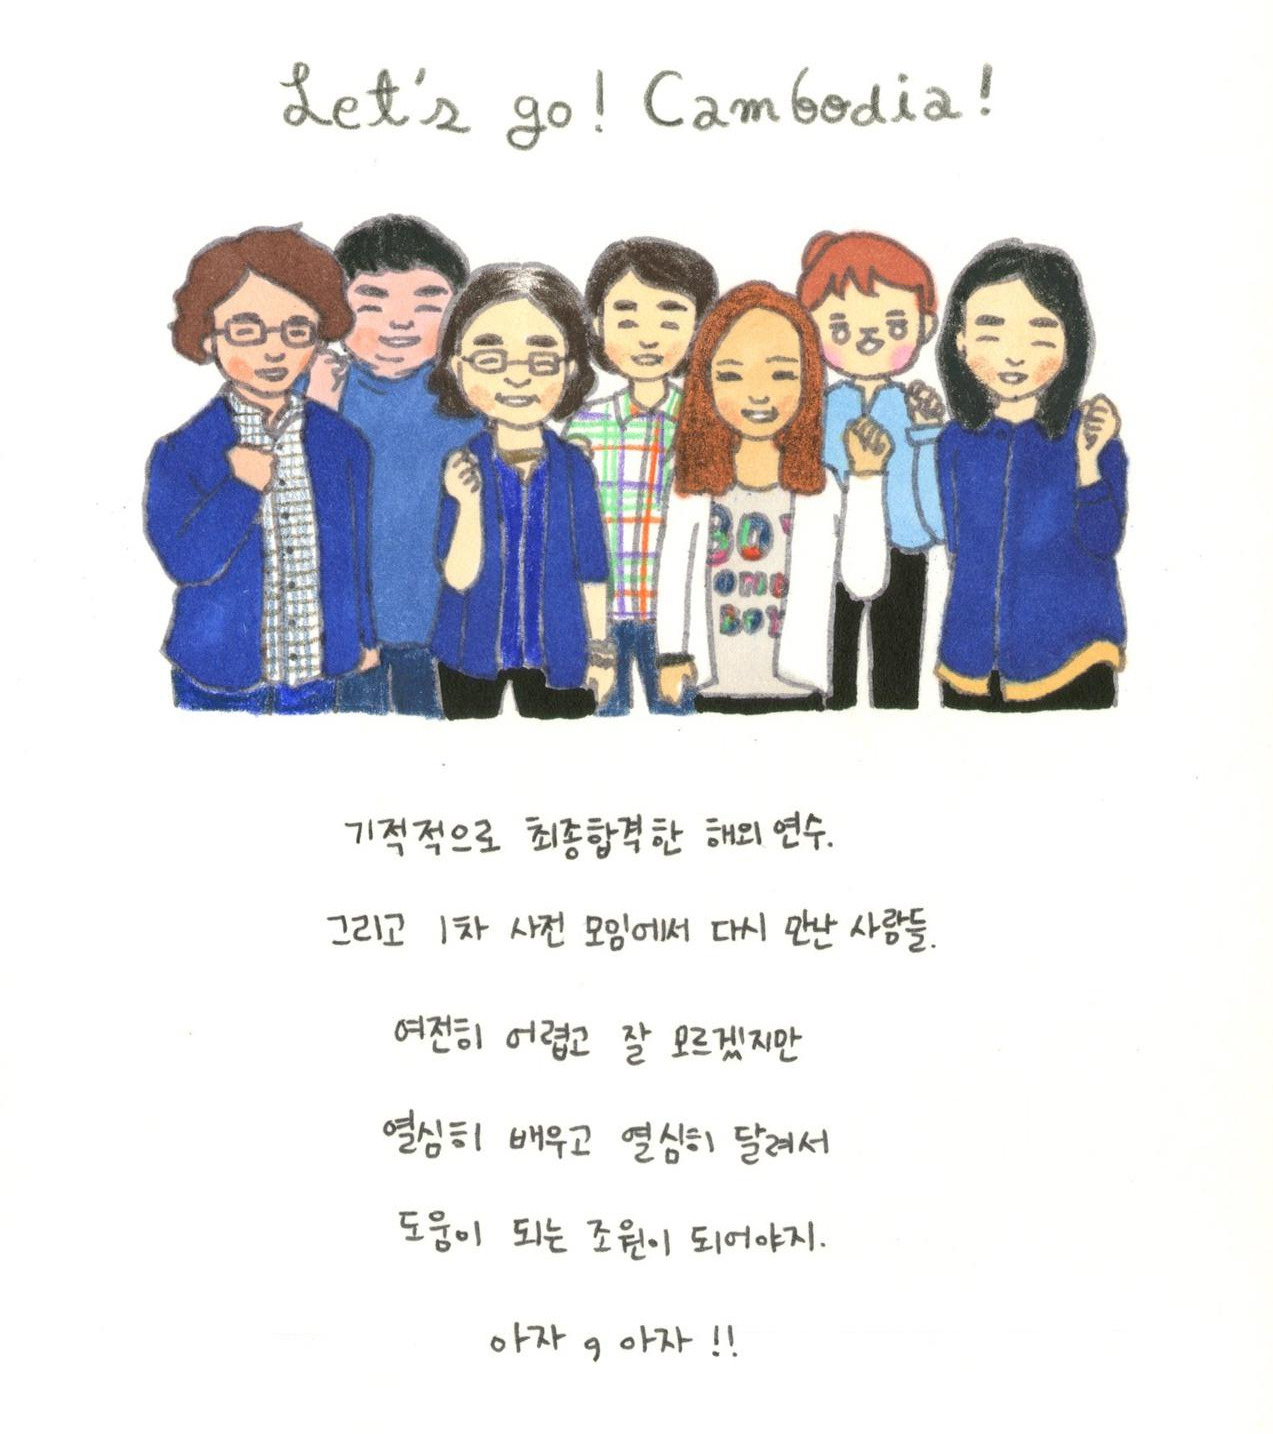 Let's go! Cambodia!
BOY
one
BOY
기적적으로 최종합격한 해외연수.
그리고 1차 사전 모임에서 다시 만난 사람들.
여전히 어렵고 잘 모르겠지만
열심히 배우고 열심히 달려서
도움이 되는 조원이 되어야지.
아자 9 아자 !!